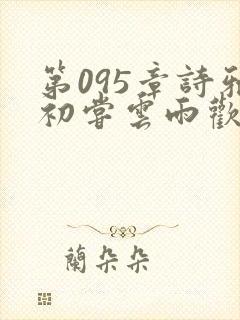 第095章詩雅
初嘗雲雨歡
蘭朵朵